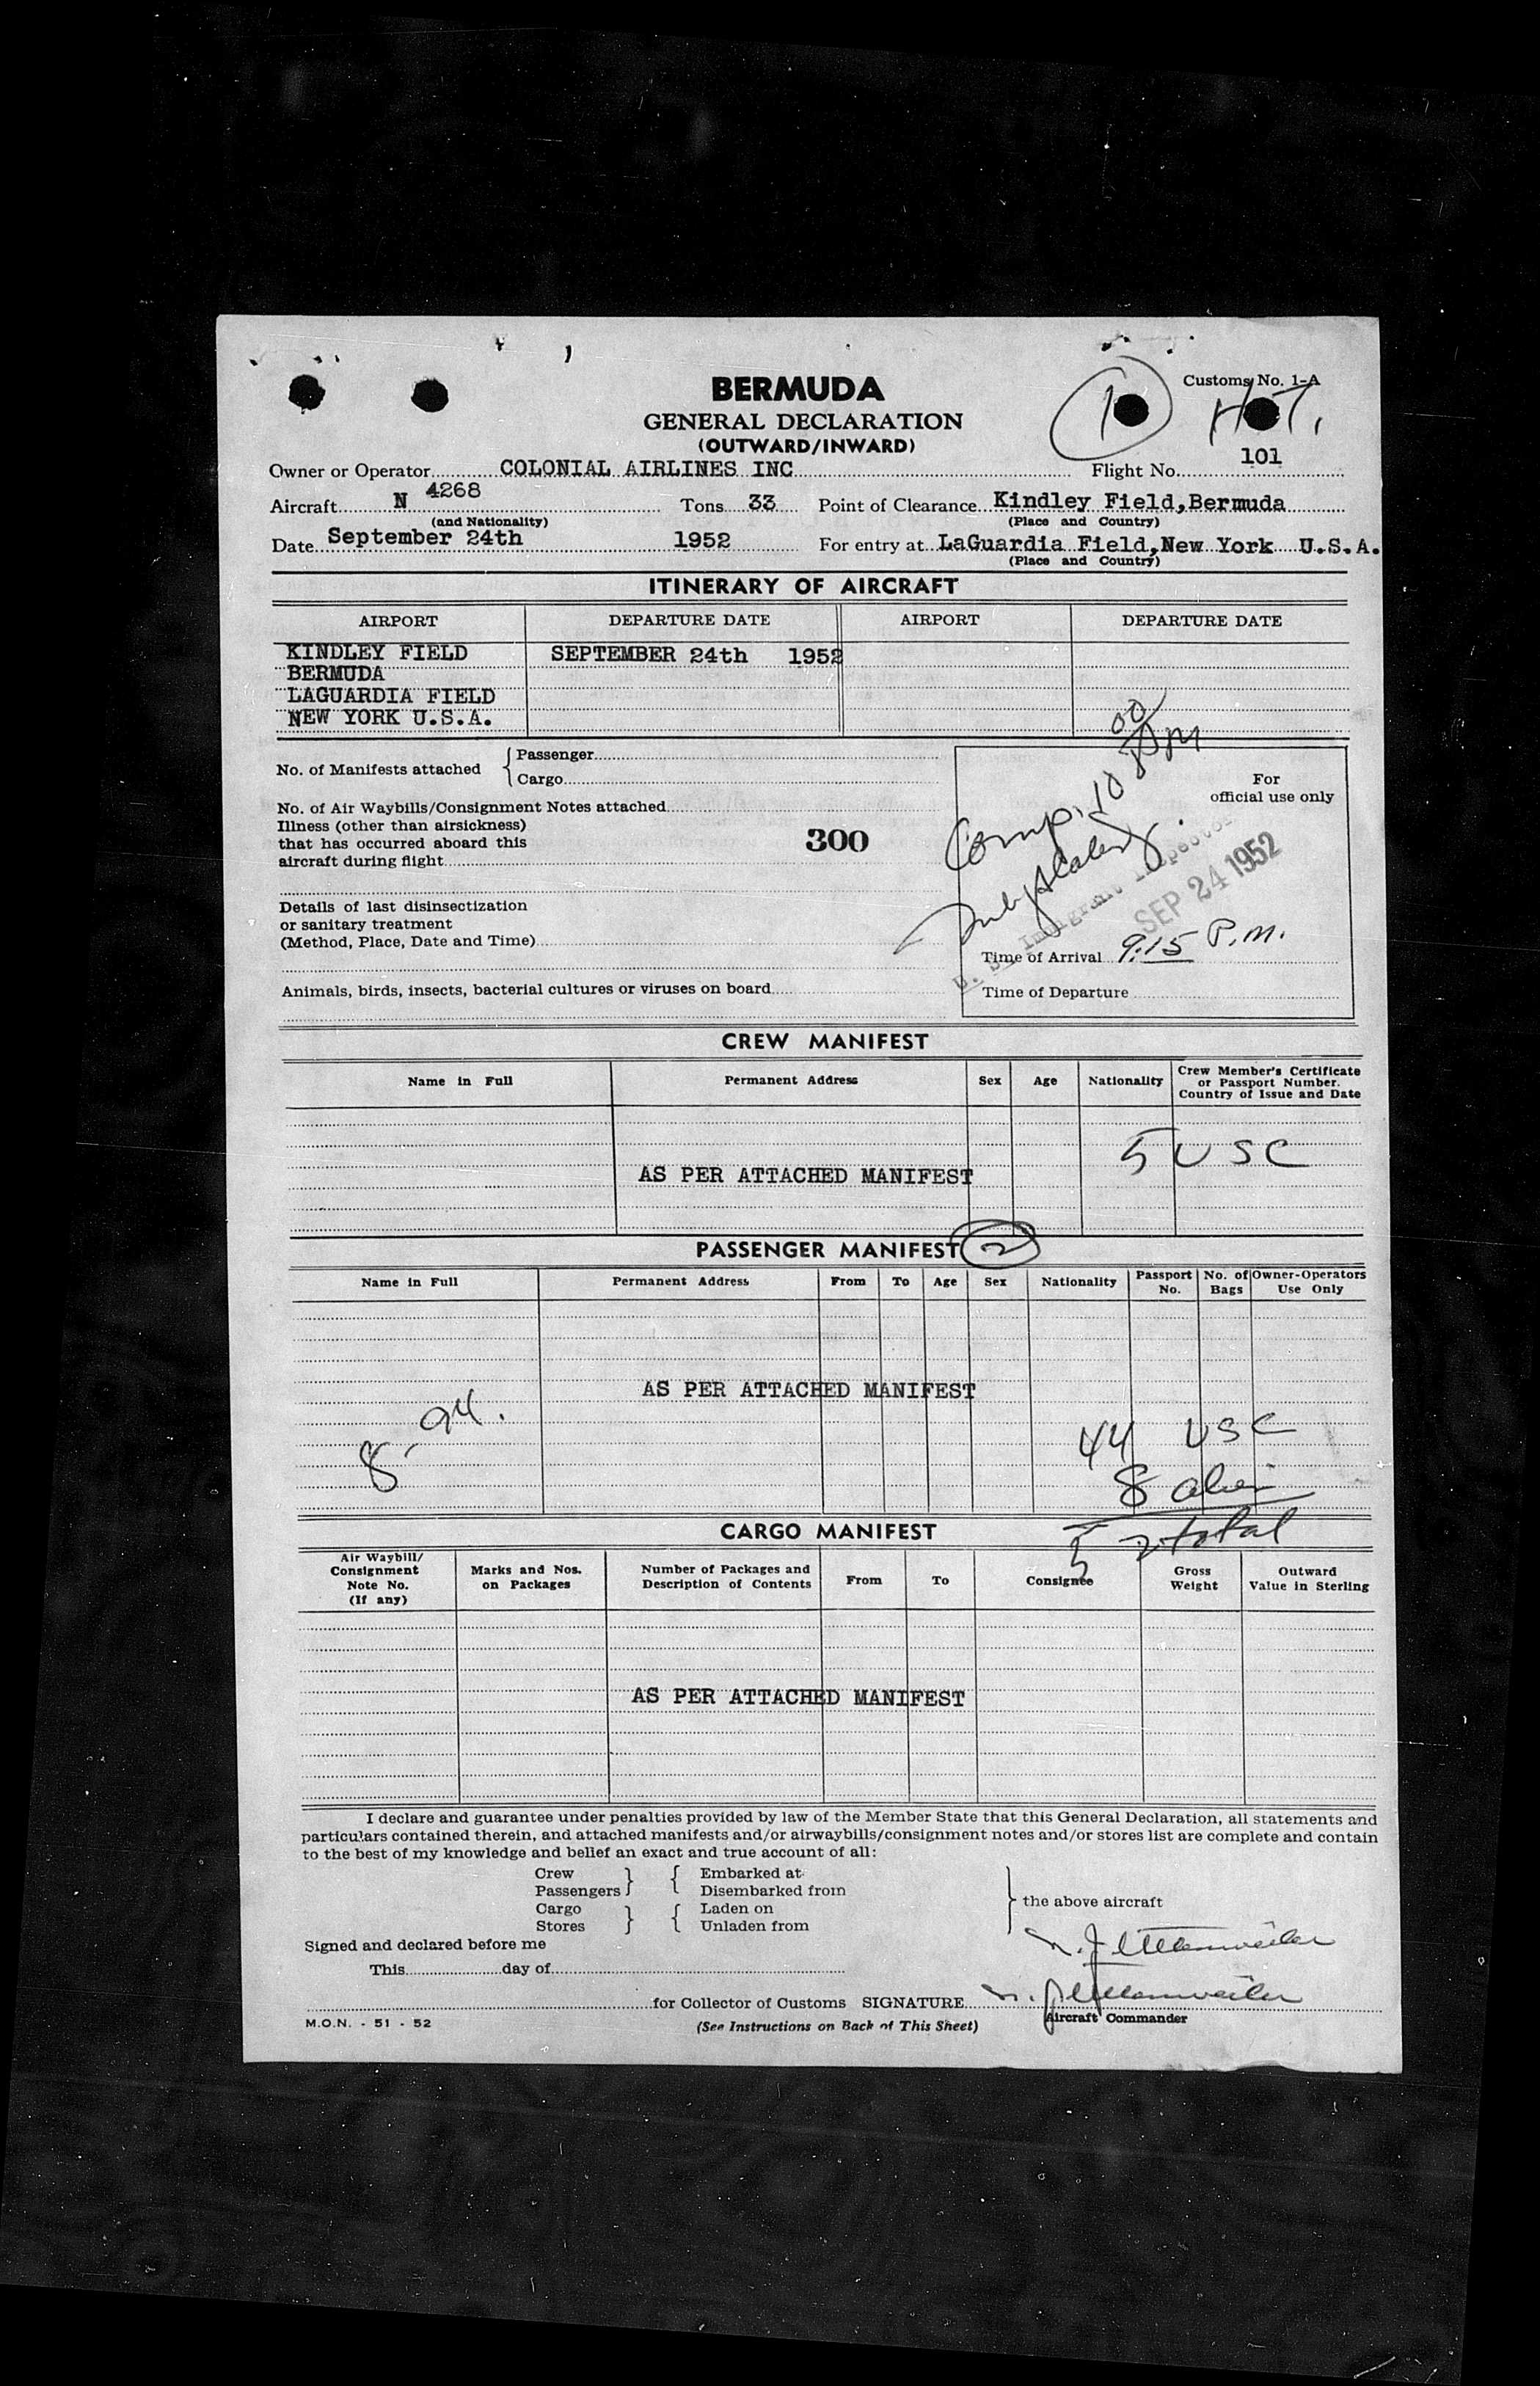 BERMUDA
GENERAL DECLARATION
(OUTWARD/INWARD)
1
Customs No. 1-A
Owner or Operator COLONIAL AIRLINES INC Flight No. 101
Aircraft N 4268 Tons 33 Point of Clearance Kindley Field, Bermuda
(and Nationality) (Place and Country)
Date September 24th 1952 For entry at LaGuardia Field, New York U.S.A.
(Place and Country)
ITINERARY OF AIRCRAFT
AIRPORT DEPARTURE DATE AIRPORT DEPARTURE DATE
KINDLEY FIELD SEPTEMBER 24th 1952
BERMUDA
LAGUARDIA FIELD
NEW YORK U.S.A.
No. of Manifests attached { Passenger
Cargo
For
official use only
Comp. 10 00 PM
No. of Air Waybills/Consignment Notes attached
Illness (other than airsickness)
that has occurred aboard this
aircraft during flight
300
U. S. Immigrant Inspector
SEP 24 1952
Details of last disinsectization
or sanitary treatment
(Method, Place, Date and Time)
Time of Arrival 9:15 P.M.
Animals, birds, insects, bacterial cultures or viruses on board
Time of Departure
CREW MANIFEST
Name in Full Permanent Address Sex Age Nationality Crew Member's Certificate
or Passport Number.
Country of Issue and Date
5 USC
AS PER ATTACHED MANIFEST
PASSENGER MANIFEST 2
Name in Full Permanent Address From To Age Sex Nationality Passport No. No. of Bags Owner-Operators Use Only
AS PER ATTACHED MANIFEST
44 USC
8
8 alien
52 total
CARGO MANIFEST
Air Waybill/
Consignment
Note No.
(If any)
Marks and Nos.
on Packages
Number of Packages and
Description of Contents
From To Consignee
Gross
Weight
Outward
Value in Sterling
AS PER ATTACHED MANIFEST
I declare and guarantee under penalties provided by law of the Member State that this General Declaration, all statements and
particulars contained therein, and attached manifests and/or airwaybills/consignment notes and/or stores list are complete and contain
to the best of my knowledge and belief an exact and true account of all:
Crew } { Embarked at
Passengers Disembarked from
Cargo } { Laden on
Stores Unladen from
} the above aircraft
Signed and declared before me
This day of
for Collector of Customs SIGNATURE
M.O.N. - 51 - 52 (See Instructions on Back of This Sheet) Aircraft Commander